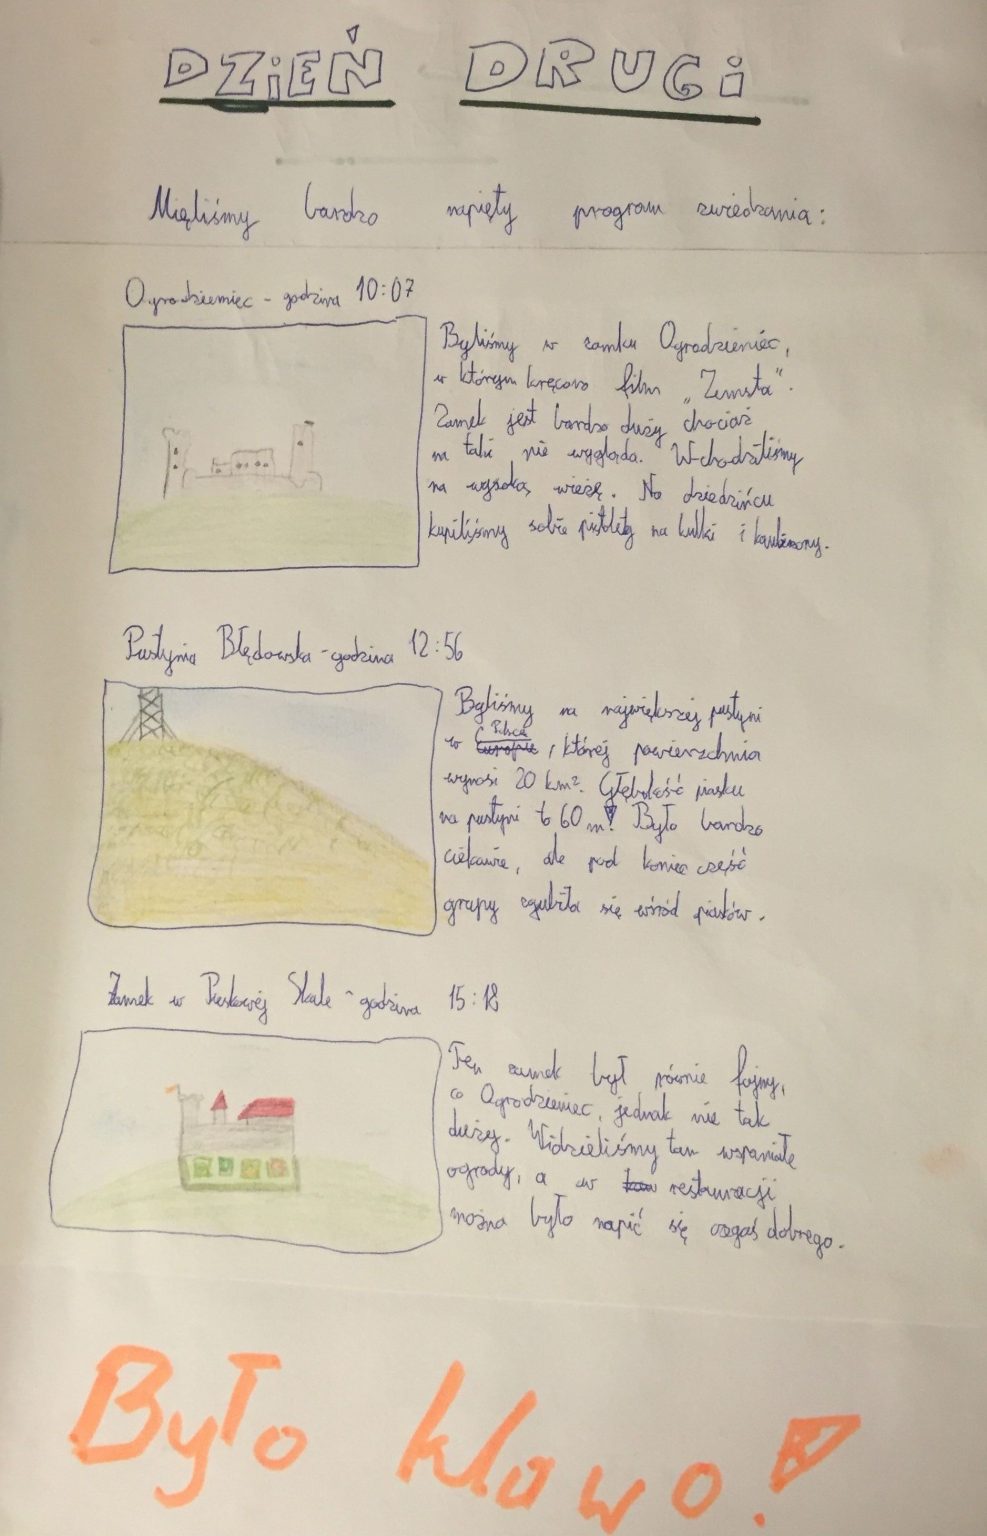 DZiEŃ DRUGi
Mieliśmy bardzo napięty program zwiedzania:
Ogrodzieniec - godzina 10:07
Byliśmy w zamku Ogrodzieniec,
w którym kręcono film „Zemsta".
Zamek jest bardzo duży chociaż
na taki nie wygląda. Wchodziliśmy
na wysoką wieżę. Na dziedzińcu
kupiliśmy sobie pistolety na kulki i
Pustynia Błędowska - godzina 12:56
Byliśmy na największej pustyni
w Polsce, której powierzchnia
wynosi 20 km². Głębokość piasku
na pustyni to 60 m! Było bardzo
ciekawie, ale pod koniec część
grupy zgubiła się wśród piasków.
Zamek w Pieskowej Skale - godzina 15:18
Ten zamek był równie fajny,
co Ogrodzieniec, jednak nie tak
duży. Widzieliśmy tam wspaniałe
ogrody, a w restauracji
można było napić się czegoś dobrego.
Było klawo!